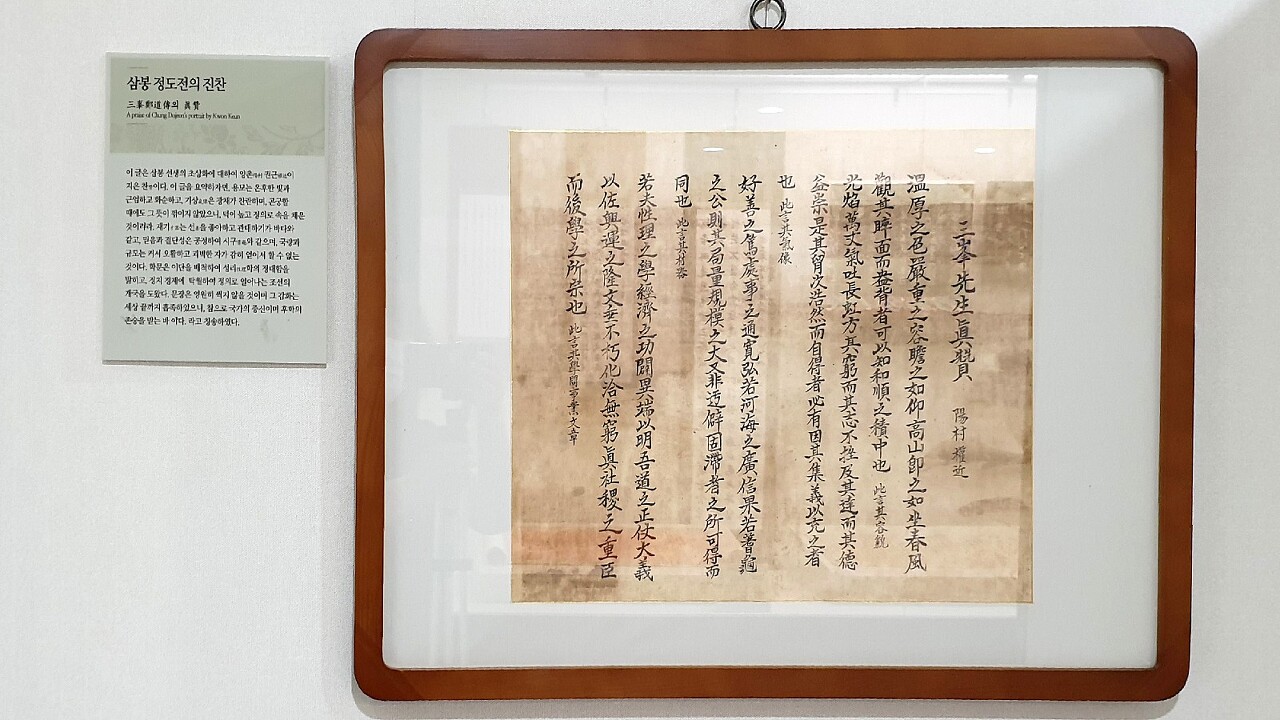 삼봉 정도전의 진찬
三峯鄭道傳의 眞贊
A praise of Chung Dojeon's portrait by Kwon Keun
이 글은 삼봉 선생의 초상화에 대하여 양촌 권근이
지은 찬이다. 이 글을 요약하자면, 용모는 온후한 빛과
근엄하고 화순하고, 기상은 광채가 찬란하며, 곤궁할
때에도 그 뜻이 꺾이지 않았으니, 태어 높고 정의로 속을 채운
것이리라. 재기는 신을 좋아하고 관대하기가 바다와
같고, 믿음과 결단성은 공정하여 시구와 같으며, 국량과
규모는 커서 오활하고 괴벽한 자가 감히 얻어서 할 수 없는
것이다. 학문은 이단을 배척하여 성리학의 정대함을
밝히고, 정치 경제에 탁월하여 정의로 일어나는 조선의
개국을 도왔다. 문장은 영원히 썩지 않을 것이며 그 감화는
세상 끝까지 흡족하였으니, 참으로 국가의 중신이며 후학의
존숭을 받는 바 이다. 라고 칭송하였다.
三峯先生眞贊 陽村 權近
溫厚之色嚴重之容瞻之如仰高山卽之如坐春風
觀其睟面而盎背者可以知和順之積中也 此言其容貌
光焰萬丈氣吐長虹方其窮而其志不挫及其達而其德
益崇是其胷次浩然而自得者必有因其集義以充之者
也 此言其氣像
好善之篤處事之通寬弘若河海之廣信果若蓍龜
之公則其局量規模之大又非迂僻固滯者之所可得而
同也 此言其材器
若夫性理之學經濟之功闢異端以明吾道之正仗大義
以佐興運之隆文垂不朽化洽無窮眞社稷之重臣
而後學之所宗也 此言其學問事業文章